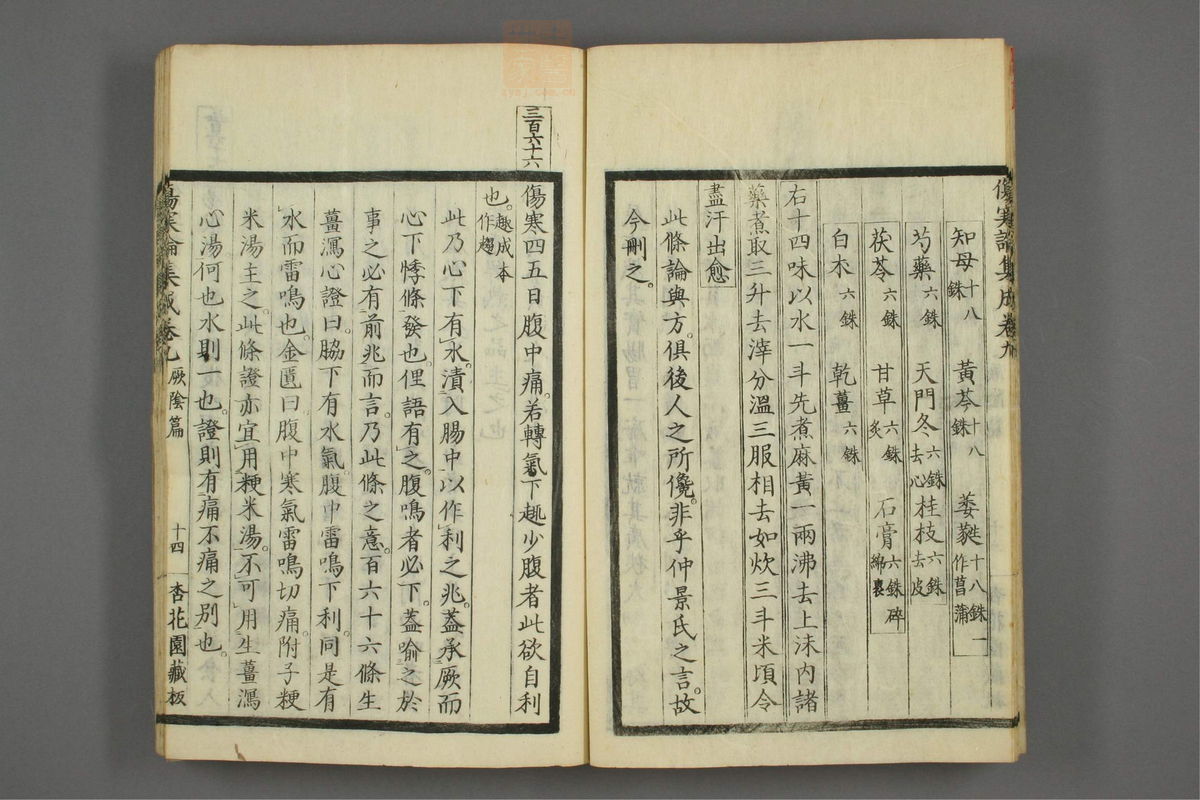 傷寒論集成卷九
知母十八銖 黃芩十八銖 萎蕤十八銖一作菖蒲
芍藥六銖 天門冬六銖去心 桂枝六銖去皮
茯苓六銖 甘草六銖炙 石膏六銖碎綿裹
白朮六銖 乾薑六銖
右十四味以水一斗先煮麻黃一兩沸去上沫內諸
藥煮取三升去滓分溫三服相去如炊三斗米頃令
盡汗出愈
此條論與方。俱後人之所儳。非乎仲景氏之言。故
今刪之。
三百六十六
傷寒四五日腹中痛。若轉氣下趣少腹者此欲自利
也。趣成本作趨
此乃心下有水。漬入腸中以作利之兆。蓋承厥而
心下悸條發也。俚語有之。腹鳴者必下。蓋喻之於
事之必有前兆而言。乃此條之意。百六十六條生
薑瀉心證曰。脇下有水氣。腹中雷鳴下利。同是有
水而雷鳴也。金匱曰腹中寒氣雷鳴切痛。附子粳
米湯主之。此條證亦宜用粳米湯。不可用生薑瀉
心湯何也水則一也。證則有痛不痛之別也。
傷寒論集成卷九 厥陰篇 十四 杏花園藏板